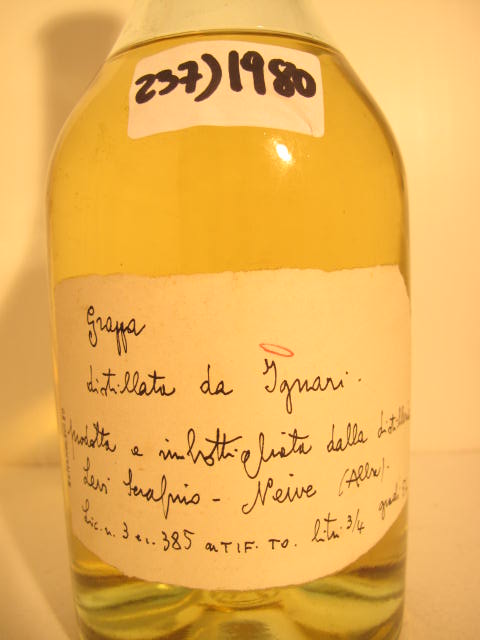 237) 1980
Grappa
distillata da Ignari.
prodotta e imbottigliata dalla distilleria
Levi Serafino - Neive (Alba).
Lic. n. 3 e n. 385 UTIF. TO. litri 3/4 gradi